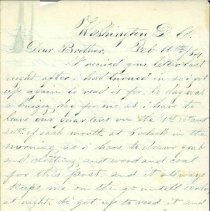 Washington D. C.
Dear Brother, Feb 11th/64
I received your letter last
night after I had turned in so I got
up again to read it for to day was
a busy day for me as I have to
leave our quarters on the 1st and
of each month at 5 o'clock in the
morning as I have to draw food
and clothing and wood and coal
for this post and it always
keeps me on the go until
at night. So I got up to read it and